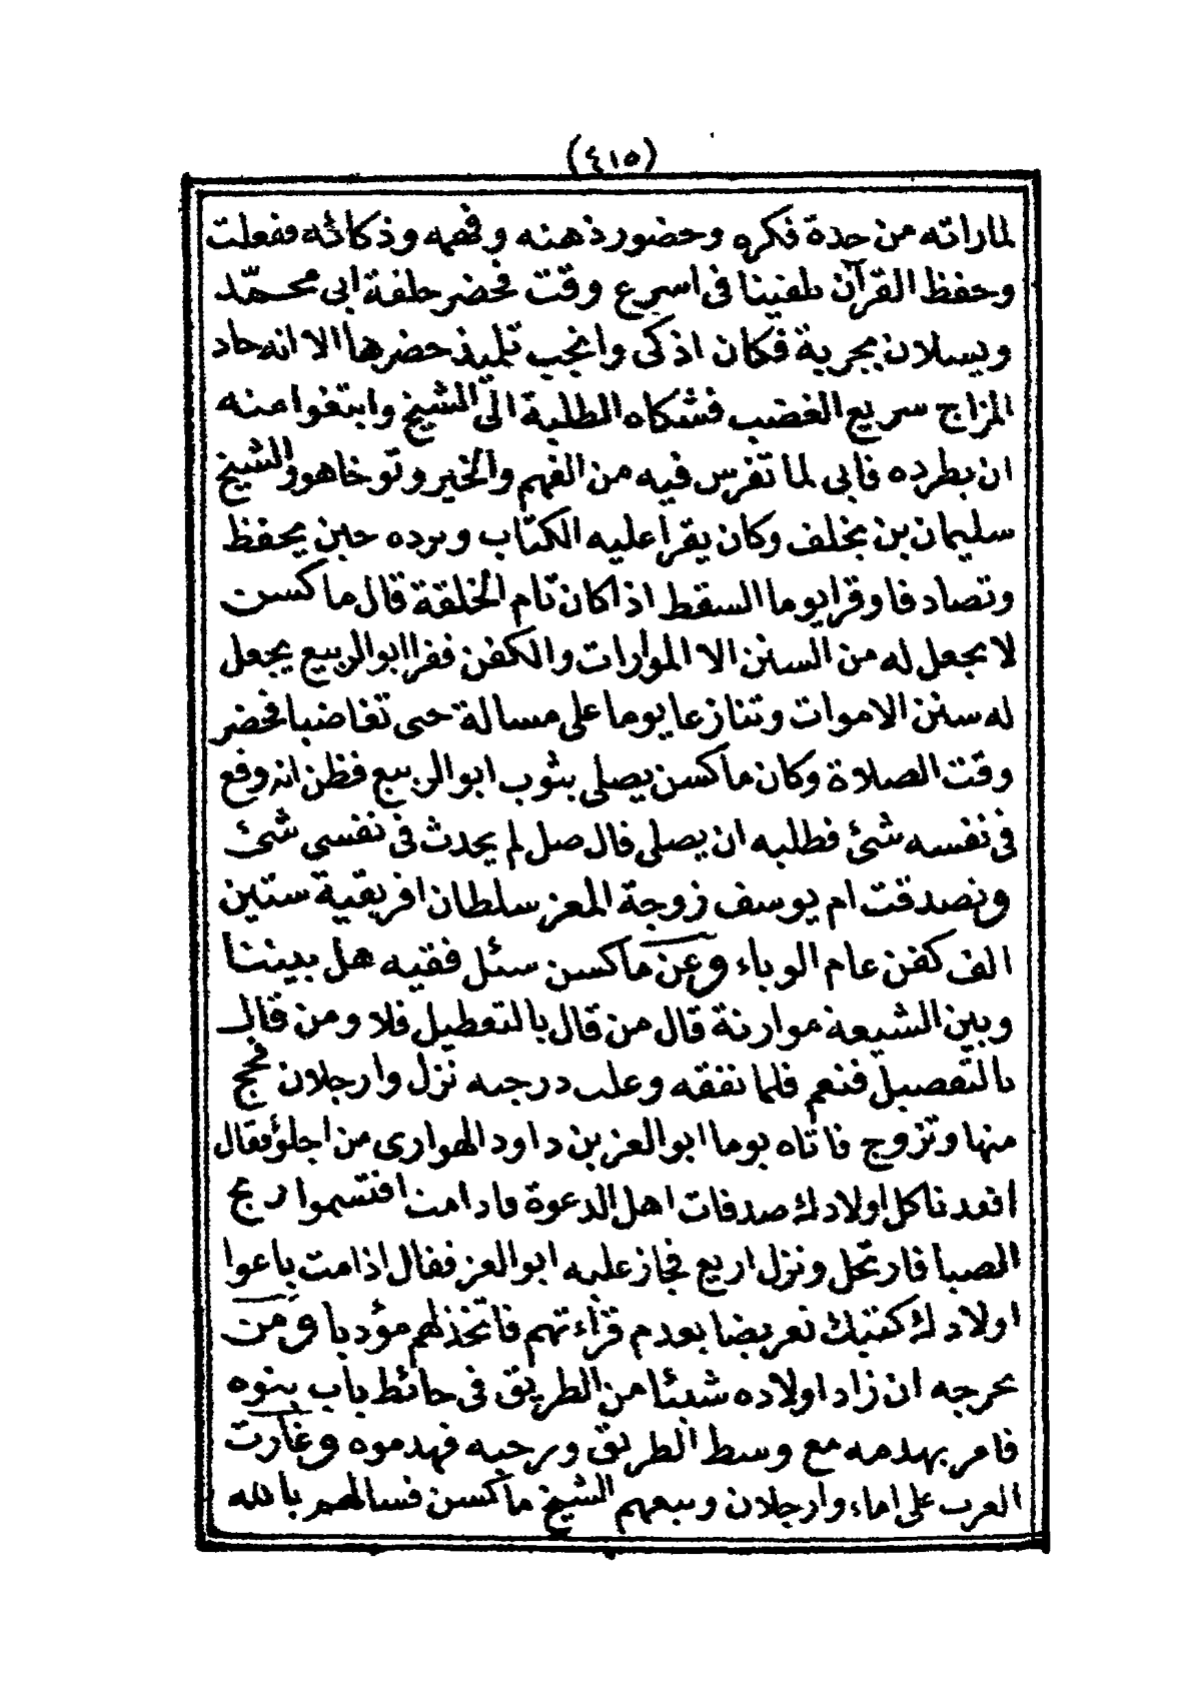 (٤١٥)
لماراته من حدة فكره وحضور ذهنه وفهمه وذكائه ففعلت
وحفظ القرآن تلقينا فى اسرع وقت فحضر حلقة ابى محمّد
ويسلان بجربة فكان اذكى وانجب تلميذ حضرها الا انه حاد
المزاج سريع الغضب فشكاه الطلبة الى الشيخ وابتغوا منه
ان يطرده فابى لما تفرس فيه من الفهم والخير وتوخاهو والشيخ
سليمان بن يخلف وكان يقرا عليه الكتاب ويرده حين يحفظ
وتصادفا وقرا يوما السقط اذا كان تام الخلقة قال ماكسن
لا يجعل له من السنن الا الموارات والكفن فقرا ابو الربيع يجعل
له سنن الاموات وتنازعا يوما على مسالة حتى تغاضبا فحضر
وقت الصلاة وكان ماكسن يصلى بثوب ابو الربيع فظن انه وقع
فى نفسه شئ فطلبه ان يصلى قال صل لم يحدث فى نفسى شئ
وتصدقت ام يوسف زوجة المعز سلطان افريقية ستين
الف كفن عام الوباء وعن ماكسن سئل فقيه هل بيننا
وبين الشيعة موارنة قال من قال بالتعطيل فلا ومن قال
بالتفصيل فنعم فلما تفقه وعلب درجبه نزل وارجلان فحج
منها وتزوج فاتاه يوما ابو العز بن داود الهوارى من اجلؤ فقال
اقعدناكل اولادك صدقات اهل الدعوة فاذا مت اقتسموا ريح
الصبا فارتحل ونزل اريغ فجاز عليه ابو العز فقال اذا مت باعوا
اولادك كتبك تعريضا بعدم قراءتهم فاتخذ لهم مؤدبا ومن
تحرجه ان زاد اولاده شيئا من الطريق فى حائط باب بنوه
فامر بهدمه مع وسط الطريق ورحبه فهدموه وغارت
العرب على اماء وارجلان وتبعهم الشيخ ماكسن فسالهم بالله